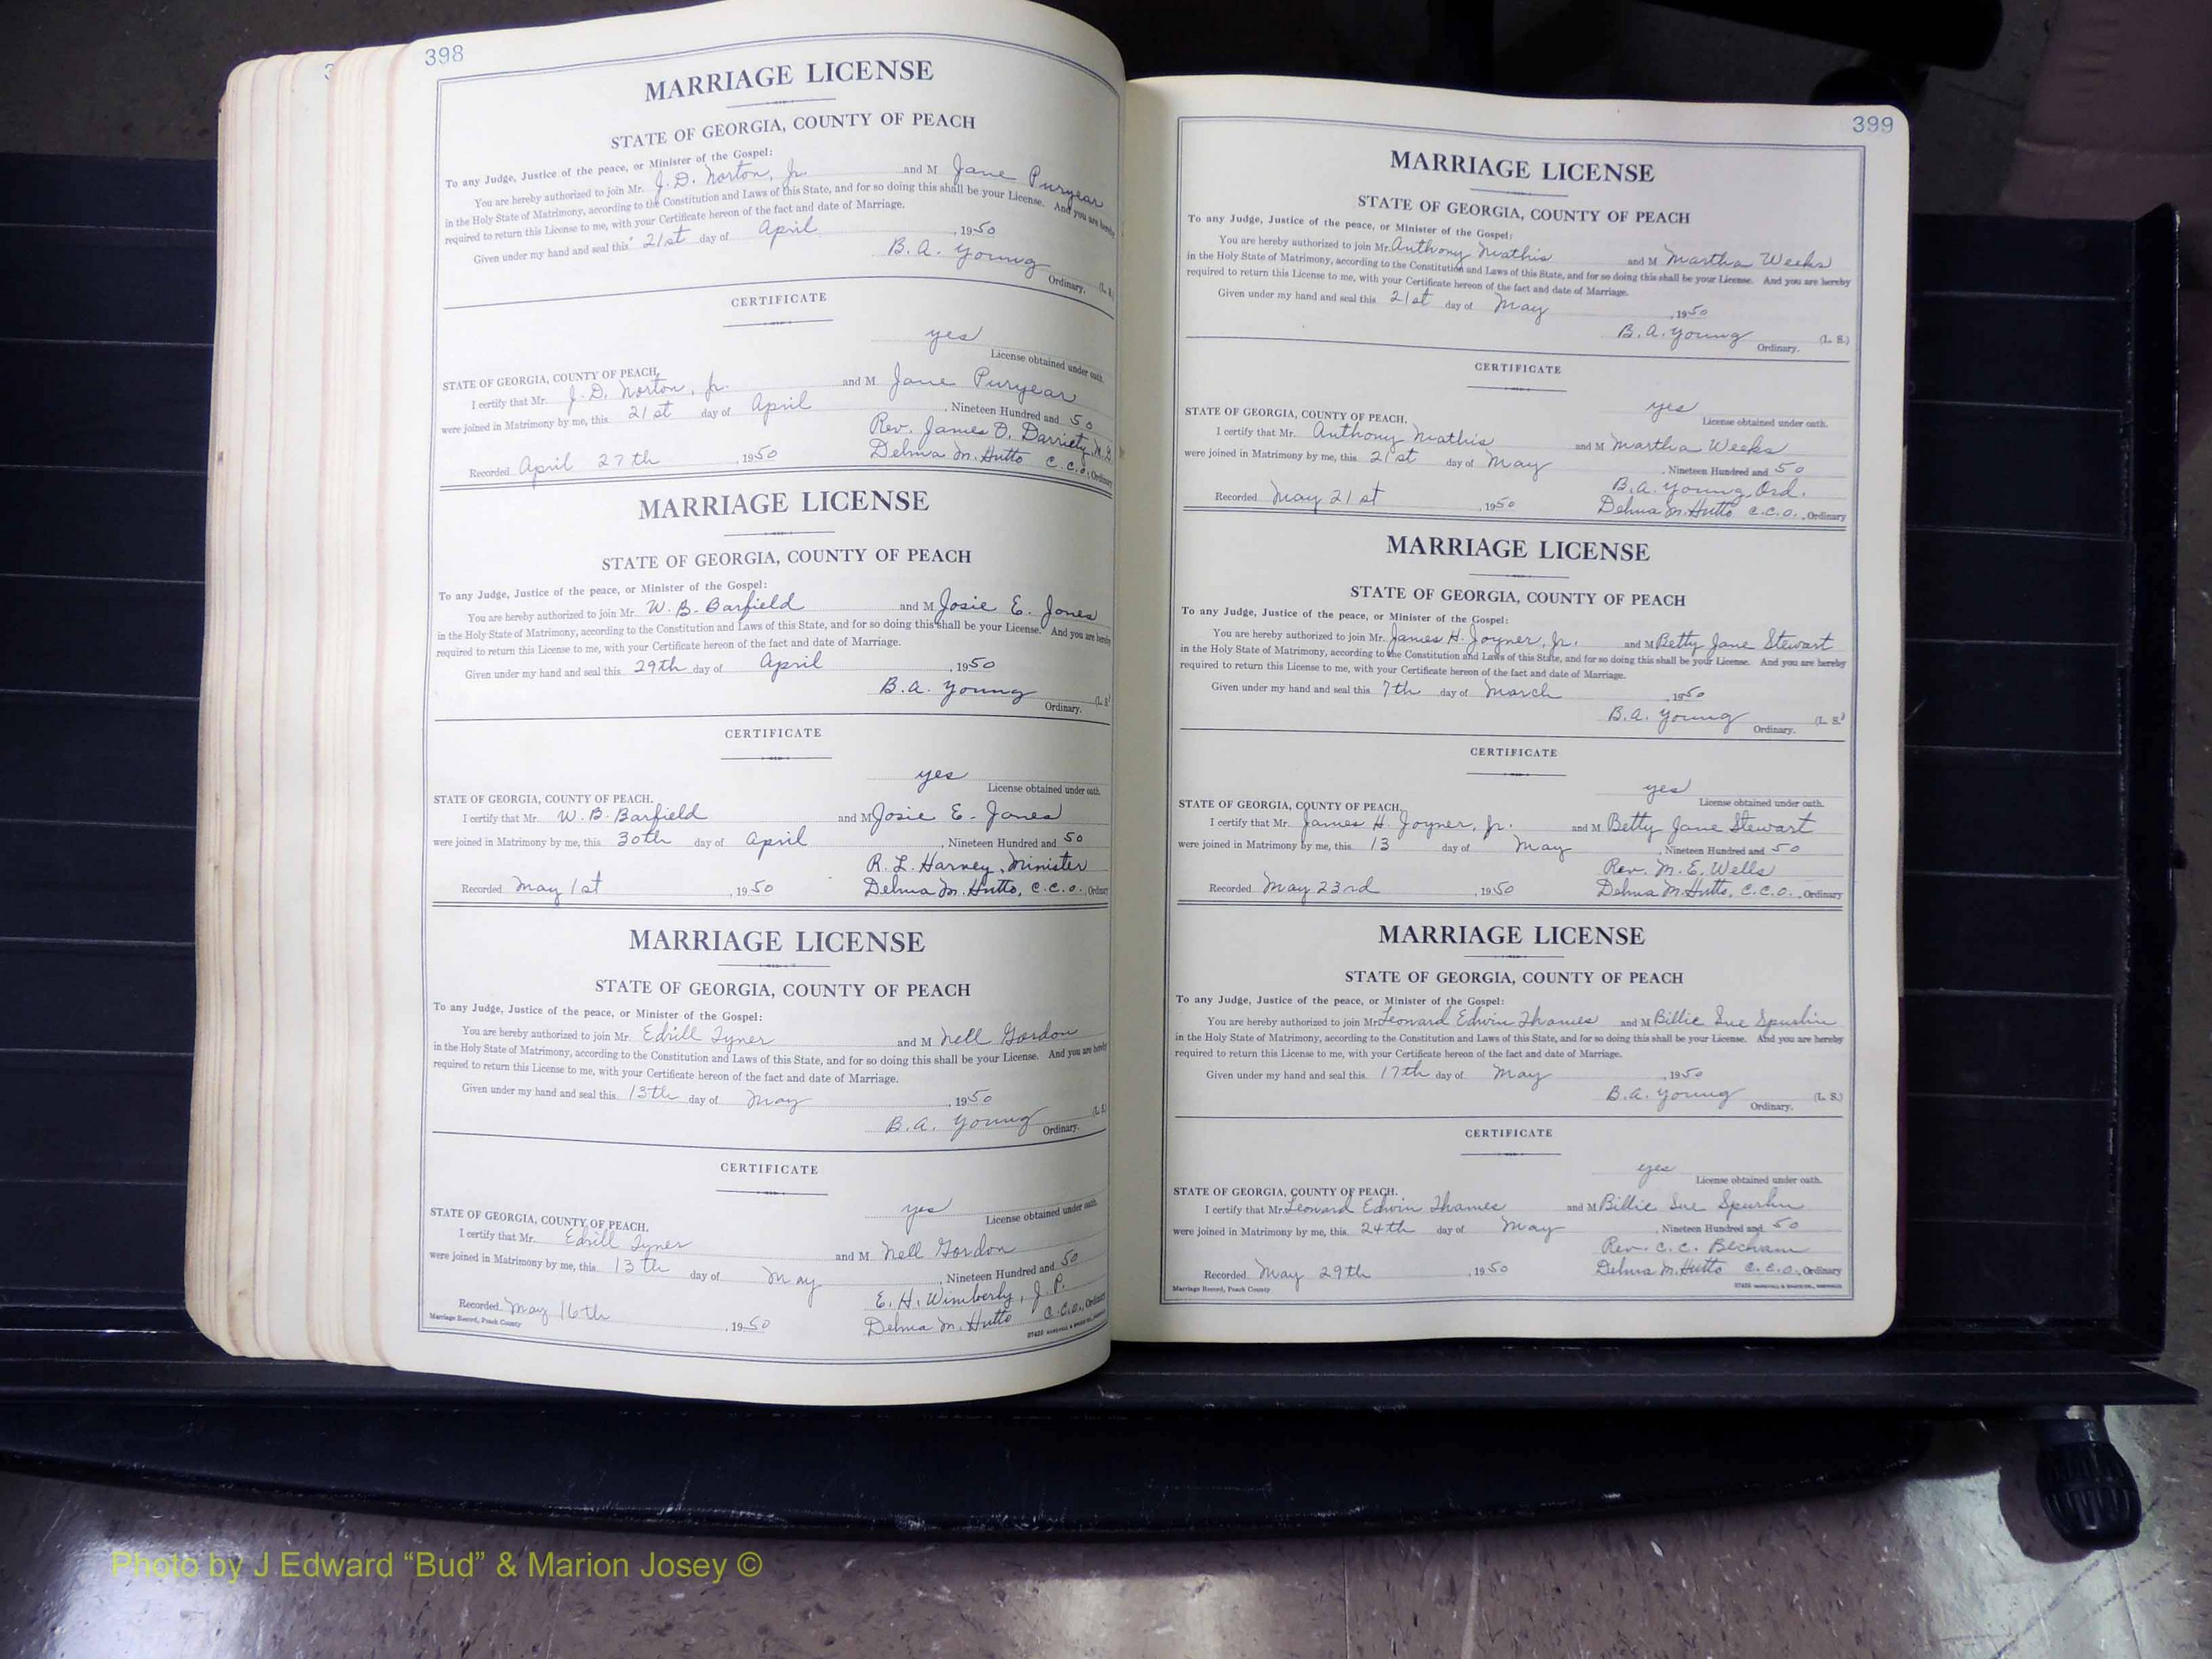 398
MARRIAGE LICENSE
STATE OF GEORGIA, COUNTY OF PEACH
To any Judge, Justice of the peace, or Minister of the Gospel:
You are hereby authorized to join Mr. J. D. Norton, Jr. and M Jane Puryear
in the Holy State of Matrimony, according to the Constitution and Laws of this State, and for so doing this shall be your License. And you are hereby
required to return this License to me, with your Certificate hereon of the fact and date of Marriage.
Given under my hand and seal this 21st day of April, 1950
B. A. Young
Ordinary. (L. S.)
CERTIFICATE
yes
License obtained under oath.
STATE OF GEORGIA, COUNTY OF PEACH,
I certify that Mr. J. D. Norton, Jr. and M Jane Puryear
were joined in Matrimony by me, this 21st day of April, Nineteen Hundred and 50
Rev. James O.
Recorded April 27th, 1950 Delma M. Hutto C.C.O., Ordinary
MARRIAGE LICENSE
STATE OF GEORGIA, COUNTY OF PEACH
To any Judge, Justice of the peace, or Minister of the Gospel:
You are hereby authorized to join Mr. W. B. Barfield and M Josie E. Jones
in the Holy State of Matrimony, according to the Constitution and Laws of this State, and for so doing this shall be your License. And you are hereby
required to return this License to me, with your Certificate hereon of the fact and date of Marriage.
Given under my hand and seal this 29th day of April, 1950
B. A. Young (L. S.)
Ordinary.
CERTIFICATE
yes
License obtained under oath.
STATE OF GEORGIA, COUNTY OF PEACH.
I certify that Mr. W. B. Barfield and M Josie E. Jones
were joined in Matrimony by me, this 30th day of April, Nineteen Hundred and 50
R. L. Harvey, Minister
Recorded May 1st, 1950 Delma M. Hutto, C.C.O., Ordinary
MARRIAGE LICENSE
STATE OF GEORGIA, COUNTY OF PEACH
To any Judge, Justice of the peace, or Minister of the Gospel:
You are hereby authorized to join Mr. Edrill Tyner and M Nell Gordon
in the Holy State of Matrimony, according to the Constitution and Laws of this State, and for so doing this shall be your License. And you are hereby
required to return this License to me, with your Certificate hereon of the fact and date of Marriage.
Given under my hand and seal this 13th day of May, 1950
B. A. Young (L. S.)
Ordinary.
CERTIFICATE
yes
License obtained under oath.
STATE OF GEORGIA, COUNTY OF PEACH.
I certify that Mr. Edrill Tyner and M Nell Gordon
were joined in Matrimony by me, this 13th day of May, Nineteen Hundred and 50
E. H. Wimberly, J. P.
Recorded May 16th, 1950 Delma M. Hutto C.C.O., Ordinary
Marriage Record, Peach County
399
MARRIAGE LICENSE
STATE OF GEORGIA, COUNTY OF PEACH
To any Judge, Justice of the peace, or Minister of the Gospel:
You are hereby authorized to join Mr. Anthony Mathis and M Martha Weeks
in the Holy State of Matrimony, according to the Constitution and Laws of this State, and for so doing this shall be your License. And you are hereby
required to return this License to me, with your Certificate hereon of the fact and date of Marriage.
Given under my hand and seal this 21st day of May, 1950
B. A. Young (L. S.)
Ordinary.
CERTIFICATE
yes
License obtained under oath.
STATE OF GEORGIA, COUNTY OF PEACH.
I certify that Mr. Anthony Mathis and M Martha Weeks
were joined in Matrimony by me, this 21st day of May, Nineteen Hundred and 50
B. A. Young, Ord.
Recorded May 21st, 1950 Delma M. Hutto C.C.O., Ordinary
MARRIAGE LICENSE
STATE OF GEORGIA, COUNTY OF PEACH
To any Judge, Justice of the peace, or Minister of the Gospel:
You are hereby authorized to join Mr. James H. Joyner, Jr. and M Betty Jane Stewart
in the Holy State of Matrimony, according to the Constitution and Laws of this State, and for so doing this shall be your License. And you are hereby
required to return this License to me, with your Certificate hereon of the fact and date of Marriage.
Given under my hand and seal this 7th day of March, 1950
B. A. Young (L. S.)
Ordinary.
CERTIFICATE
yes
License obtained under oath.
STATE OF GEORGIA, COUNTY OF PEACH.
I certify that Mr. James H. Joyner, Jr. and M Betty Jane Stewart
were joined in Matrimony by me, this 13 day of May, Nineteen Hundred and 50
Rev. M. E. Wells
Recorded May 23rd, 1950 Delma M. Hutto, C.C.O., Ordinary
MARRIAGE LICENSE
STATE OF GEORGIA, COUNTY OF PEACH
To any Judge, Justice of the peace, or Minister of the Gospel:
You are hereby authorized to join Mr. Leonard Edwin Thames and M Billie Sue Spurlin
in the Holy State of Matrimony, according to the Constitution and Laws of this State, and for so doing this shall be your License. And you are hereby
required to return this License to me, with your Certificate hereon of the fact and date of Marriage.
Given under my hand and seal this 17th day of May, 1950
B. A. Young (L. S.)
Ordinary.
CERTIFICATE
yes
License obtained under oath.
STATE OF GEORGIA, COUNTY OF PEACH.
I certify that Mr. Leonard Edwin Thames and M Billie Sue Spurlin
were joined in Matrimony by me, this 24th day of May, Nineteen Hundred and 50
Rev. C. C.
Recorded May 29th, 1950 Delma M. Hutto C.C.O., Ordinary
Marriage Record, Peach County
Photo by J Edward “Bud” & Marion Josey ©